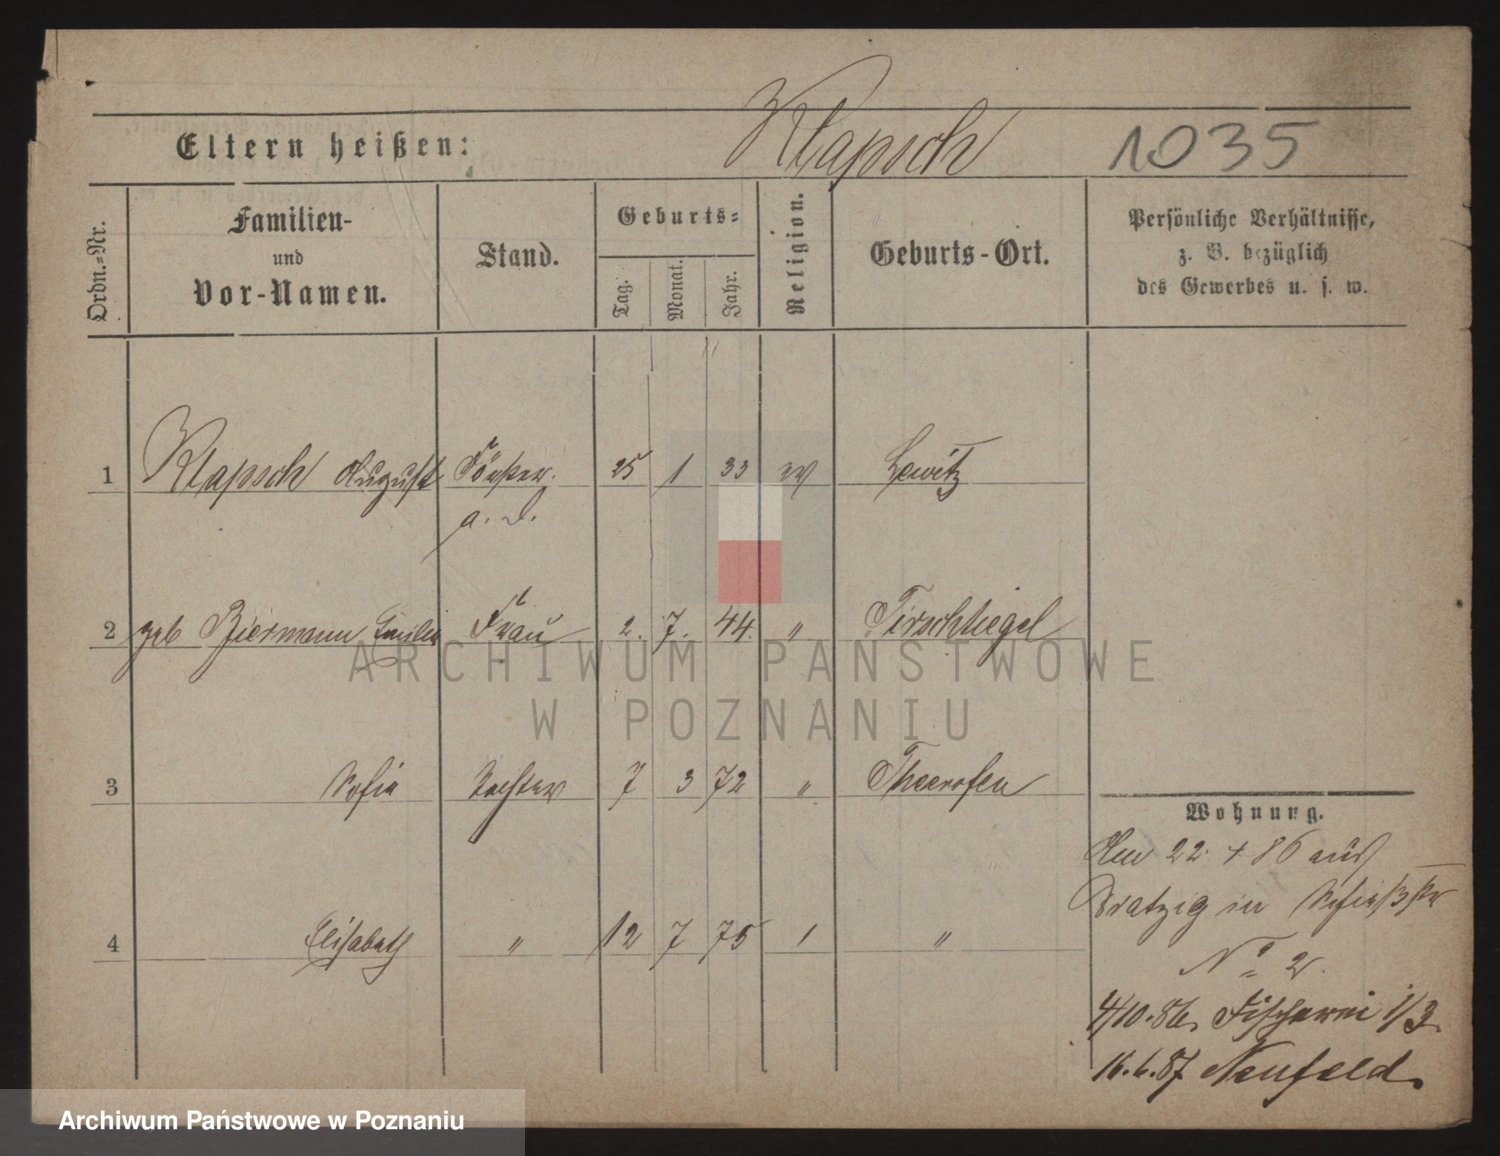 Klapsch 1035
Eltern heißen:
Ordn.-Nr.
Familien-
und
Vor-Namen.
Stand.
Geburts-
Tag.
Monat.
Jahr.
Religion.
Geburts-Ort.
Persönliche Verhältnisse,
z. B. bezüglich
des Gewerbes u. s. w.
1 Klapsch August Förster 25 1 33 ev Lewitz
a. D.
2 geb Biermann Emilie Frau 2. 7. 44. " Tirschtiegel
3 Sofie Tochter 7 3 72 " Theerofen
4 Elisabeth " 12 7 75 "
Wohnung.
22. 86 aus
in
No 2.
4/10.86. Fischerei 1/3.
16.6.87 Neufeld.
ARCHIWUM PAŃSTWOWE
W POZNANIU
Archiwum Państwowe w Poznaniu